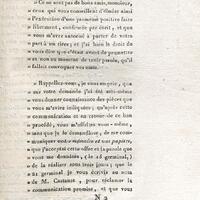 » Ce ne sont pas de bons amis, monsieur,
» ceux qui vous conseillent d'éluder ainsi
» l'exécution d'une promesse positive faite
» librement, confirmée par écrit, et que
» vous m'avez autorisé à porter de votre
» part à un tiers; et j'ai bien le droit de
» vous dire que c'était avant de promettre
» et non au moment de tenir parole, qu'il
» fallait consulter.
» Rappelez-vous, je vous en prie, que
» sur ma demande j'ai été moi-même
» vous donner connaissance des pièces que
» vous ignoriez; que quoiqu'après cette
» communication
» procédé, vous m'offrîtes vous-même,
» sans que je le demandasse, de me com-
» muniquer
» que j'acceptai cette offre et la parole que
» vous me donniez, (le 28 germinal,)
» de la réaliser sous trois jours; que le
» germinal je vous écrivis au nom
» de M. Castanet, pour réclamer la
» communication promise, et que vous
N 2